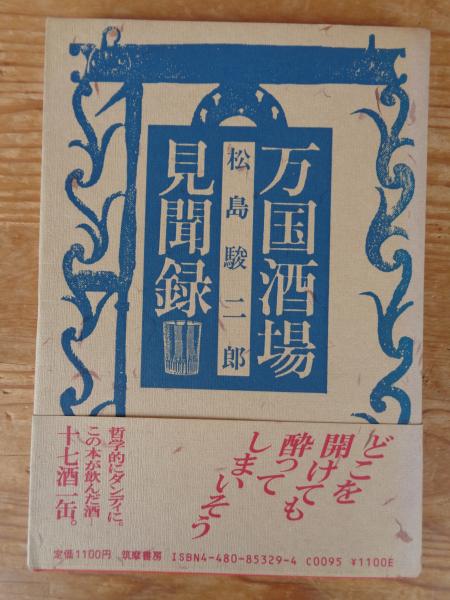 万国酒場
見聞録
松島駿二郎
どこを
開けても
酔って
しまいそう
哲学的にダンディに。
この本が飲んだ酒―
十七酒一缶。
定価1100円 筑摩書房 ISBN4-480-85329-4 C0095 ¥1100E